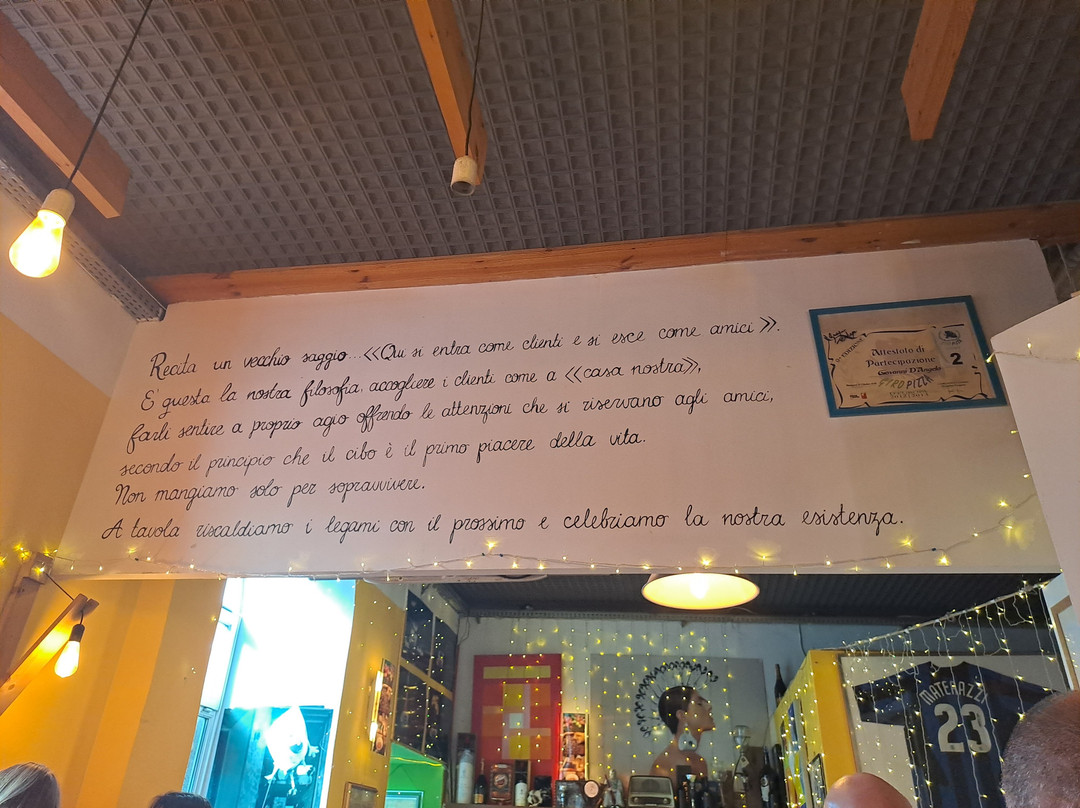 Recita un vecchio saggio...<<Qui si entra come clienti e si esce come amici>>.
E questa la nostra filosofia, accogliere i clienti come a <<casa nostra>>,
farli sentire a proprio agio offrendo le attenzioni che si riservano agli amici,
secondo il principio che il cibo è il primo piacere della vita.
Non mangiamo solo per sopravvivere.
A tavola riscaldiamo i legami con il prossimo e celebriamo la nostra esistenza.
Attestato di
Partecipazione
2
Giovanni D'Angelo
PIZZA
MATERAZZI
23